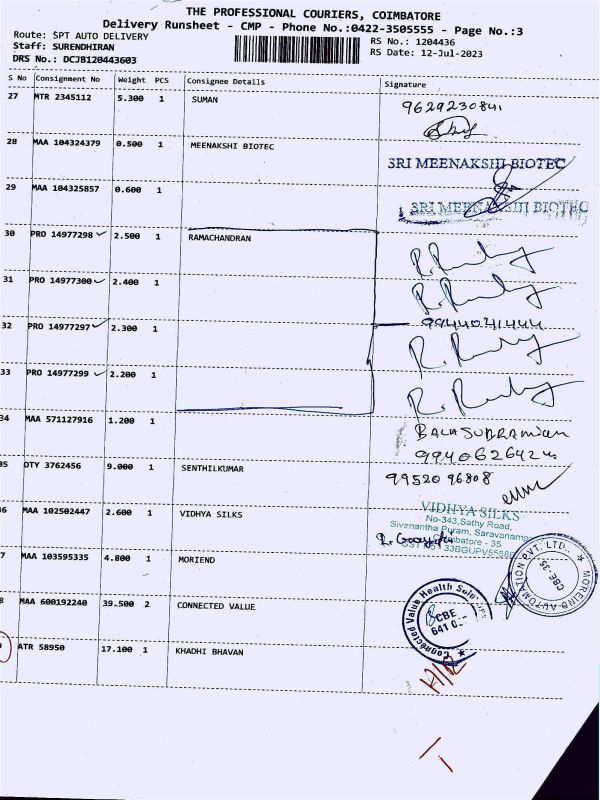 THE PROFESSIONAL COURIERS, COIMBATORE
Delivery Runsheet - CMP - Phone No.:0422-3505555 - Page No.:3
Route: SPT AUTO DELIVERY
RS No.: 1204436
Staff: SURENDHIRAN
RS Date: 12-Jul-2023
DRS No.: DCJB120443603
S No Consignment No Weight PCS Consignee Details Signature
27 MTR 2345112 5.300 1 SUMAN
9629230841
28 MAA 104324379 0.500 1 MEENAKSHI BIOTEC
SRI MEENAKSHI BIOTEC
29 MAA 104325857 0.600 1
SRI MEENAKSHI BIOTEC
30 PRO 14977298 2.500 1 RAMACHANDRAN
31 PRO 14977300 2.400 1
32 PRO 14977297 2.300 1
9944071444
33 PRO 14977299 2.200 1
34 MAA 571127916 1.200 1
BALASUBRAMIAN
35 DTY 3762456 9.000 1 SENTHILKUMAR
99520 96808
36 MAA 102502447 2.600 1 VIDHYA SILKS
VIDHYA SILKS
No-343,Sathy Road,
Sivanantha Puram, Saravanampa
Coimbatore - 35
7 MAA 103595335 4.800 1 MORIEND
MOREINB AUTOMATION PVT. LTD.,
CBE-35
8 MAA 600192240 39.500 2 CONNECTED VALUE
Connected Value Health Solu
CBE
641 0
ATR 58950 17.100 1 KHADHI BHAVAN